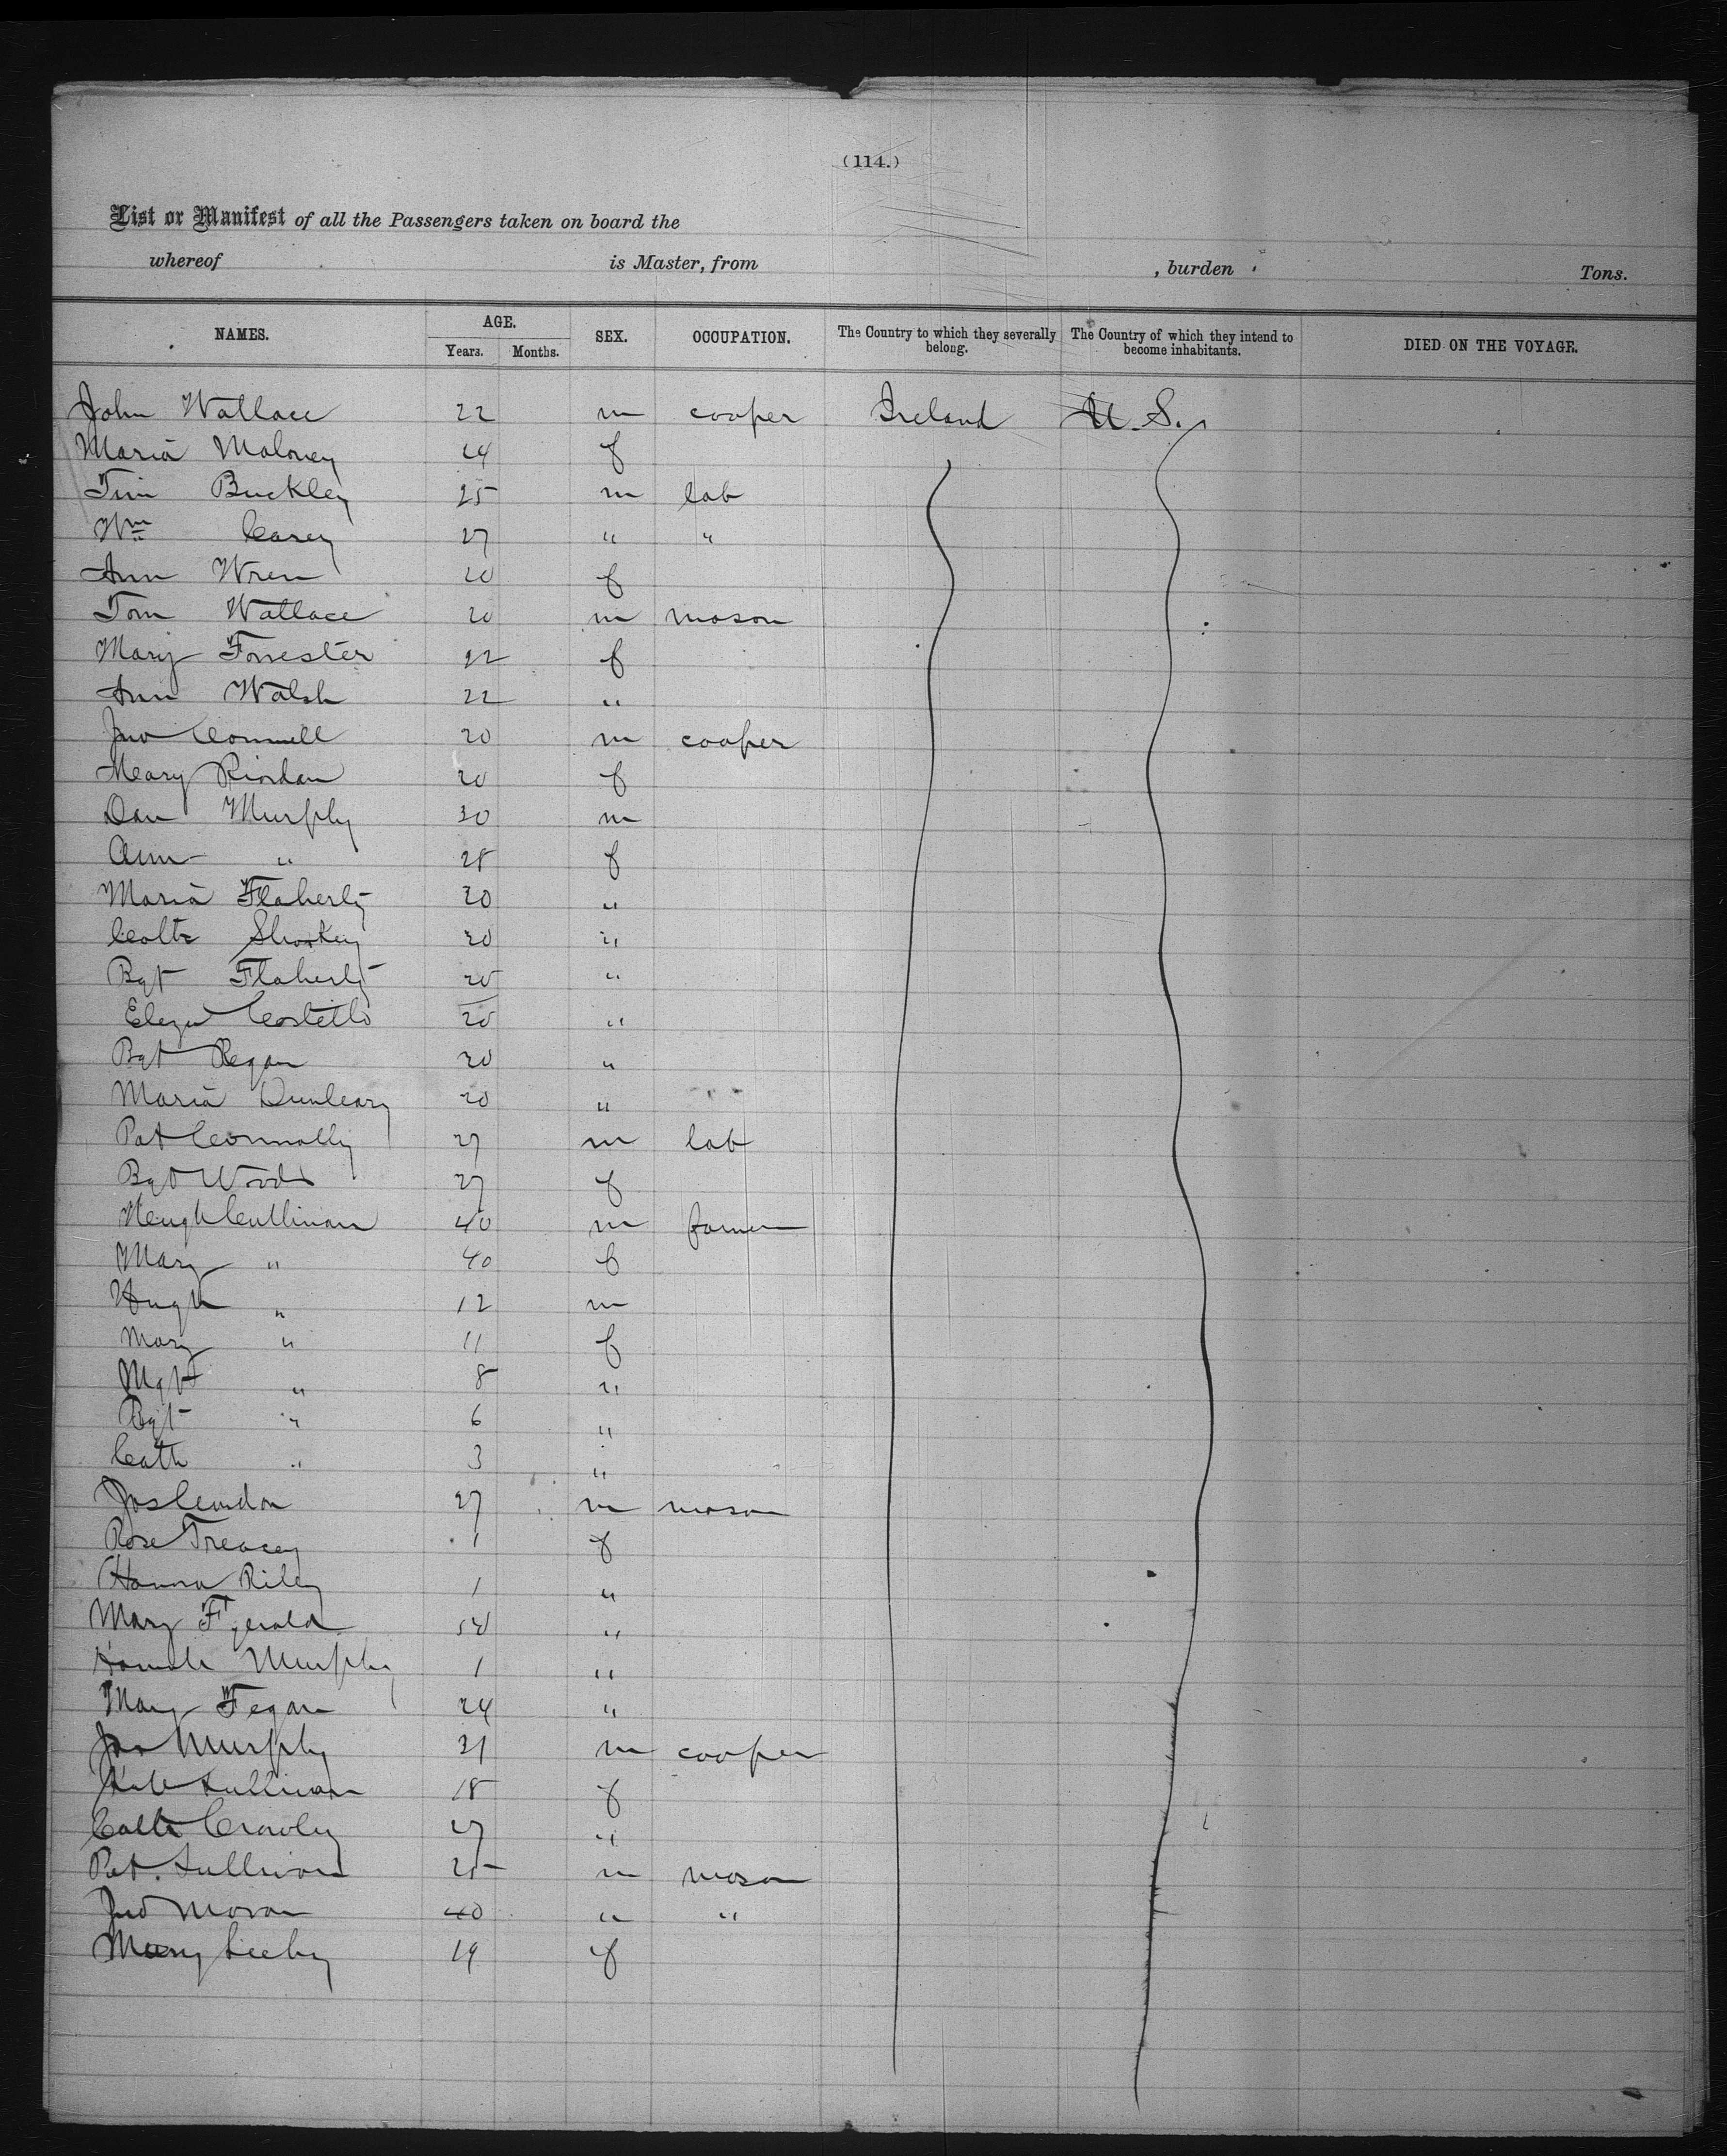 (114.)
List or Manifest of all the Passengers taken on board the
whereof is Master, from , burden Tons.
NAMES. AGE. Years. Months. SEX. OCCUPATION. The Country to which they severally belong. The Country of which they intend to become inhabitants. DIED ON THE VOYAGE.
John Wallace 22 m cooper Ireland U.S.
Maria Maloney 24 f
Tim Buckley 25 m lab
Wm Carey 27 " "
Ann Wren 20 f
Tom Wallace 20 m mason
Mary Forrester 22 f
Ann Walsh 22 "
Jno Connell 20 m cooper
Mary Riordan 20 f
Dan Murphy 30 m
Ann " 28 f
Maria Flaherty 20 "
Cath Sharkey 20 "
Bgt Flaherty 20 "
Eliza Costello 20 "
Bgt Regan 20 "
Maria Dunleavy 20 "
Pat Connolly 27 m lab
Bgt Woods 27 f
Hugh Cullinan 40 m farmer
Mary " 40 f
Hugh " 12 m
Mary " 11 f
Mgt " 8 "
Bgt " 6 "
Cath " 3 "
Jas Condon 27 m mason
Rose Treacey 1 f
Hanna Riley 1 "
Mary F'gerald 54 "
Hannah Murphy 1 "
Mary Fegan 24 "
Jno Murphy 21 m cooper
Sullivan 18 f
Cath Crowley 27 "
Pat. Sullivan 25 m mason
Jno Moran 40 " "
Mary 19 f